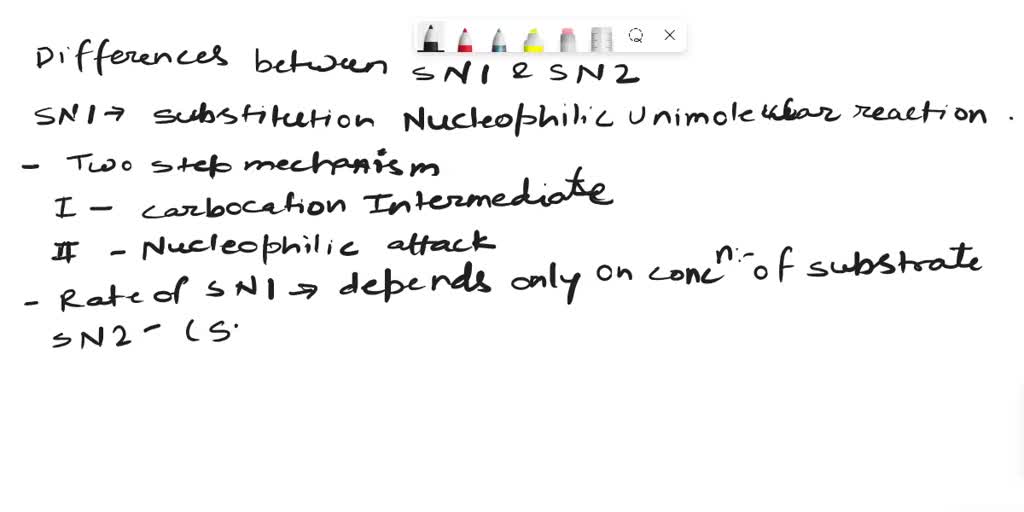 Differences between SN1 & SN2
SN1→ substitution Nucleophilic Unimolecular reaction.
- Two step mechanism
I - carbocation Intermediate
II - Nucleophilic attack
- Rate of SN1 → depends only on concn:- of substrate
SN2 - (S.